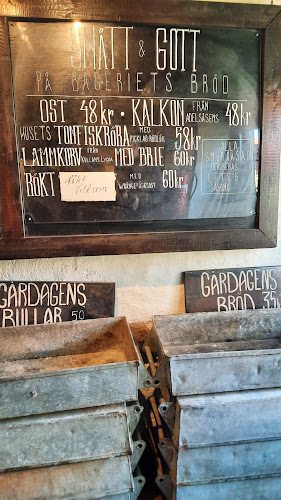 SMÅTT & GOTT
PÅ BAGERIETS BRÖD
OST 48 kr · KALKON FRÅN ADELSÅSENS 48 kr
HUSETS TONFISKRÖRA MED PICKLAD RÖDLÖK 58 kr
LAMMKORV FRÅN MED BRIE 60 kr
RÖKT MED 60 kr
ALLA
SMÖRGÅSAR
SÄSONG
GÅRDAGENS
BULLAR 50
GÅRDAGENS
BRÖD 35